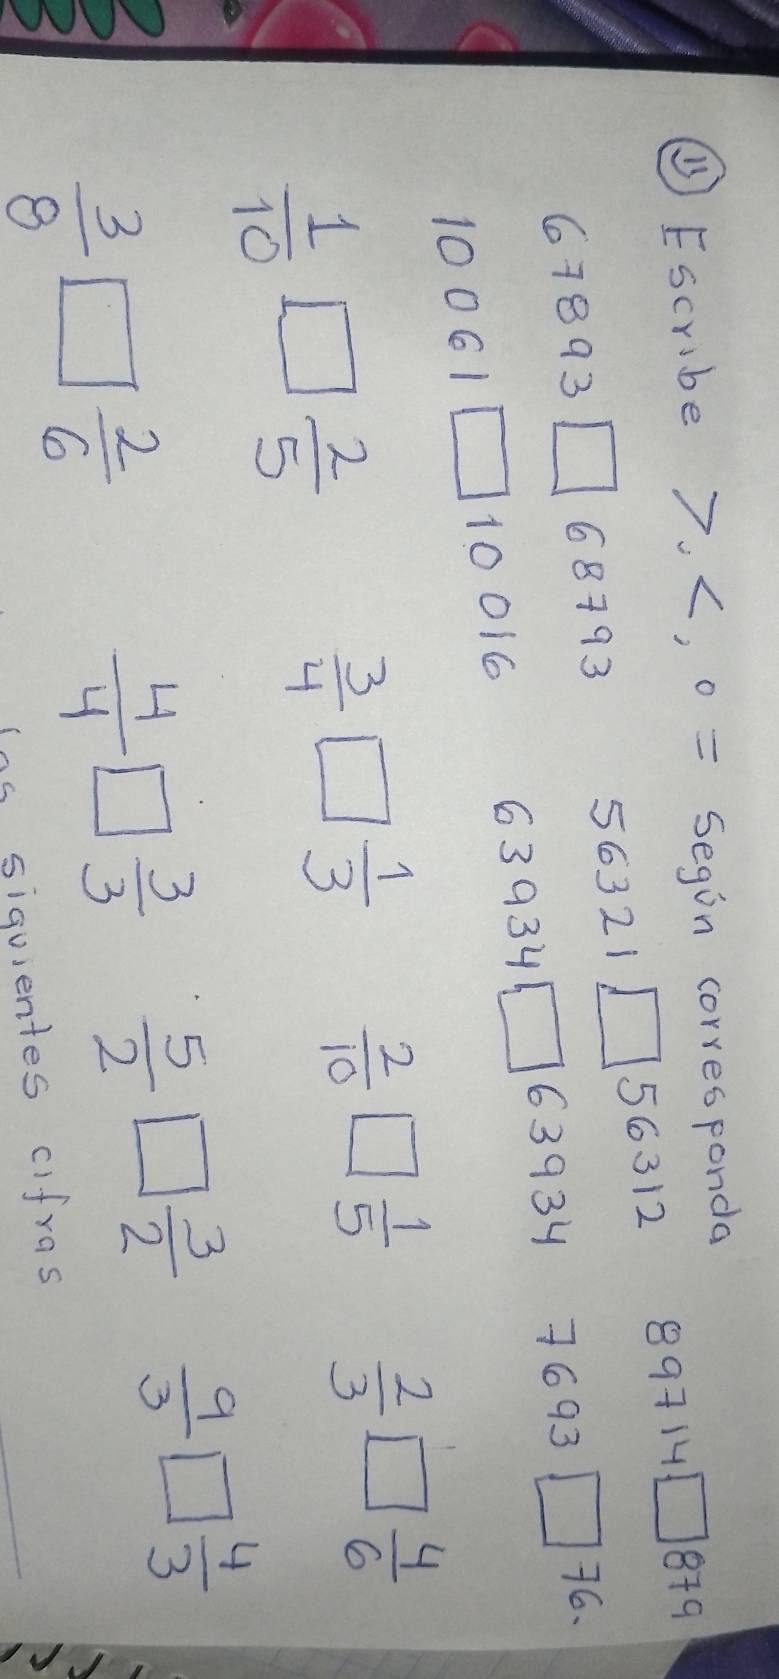 11 Escribe >, <, o = según corresponda
67893 □ 68793 56321 □ 56312 89714 □ 879
10061 □ 10016 63934 □ 63934 7693 □ 76
1/10 □ 2/5 3/4 □ 1/3 2/10 □ 1/5 2/3 □ 4/6
3/8 □ 2/6 4/4 □ 3/3 5/2 □ 3/2 9/3 □ 4/3
siguientes cifras